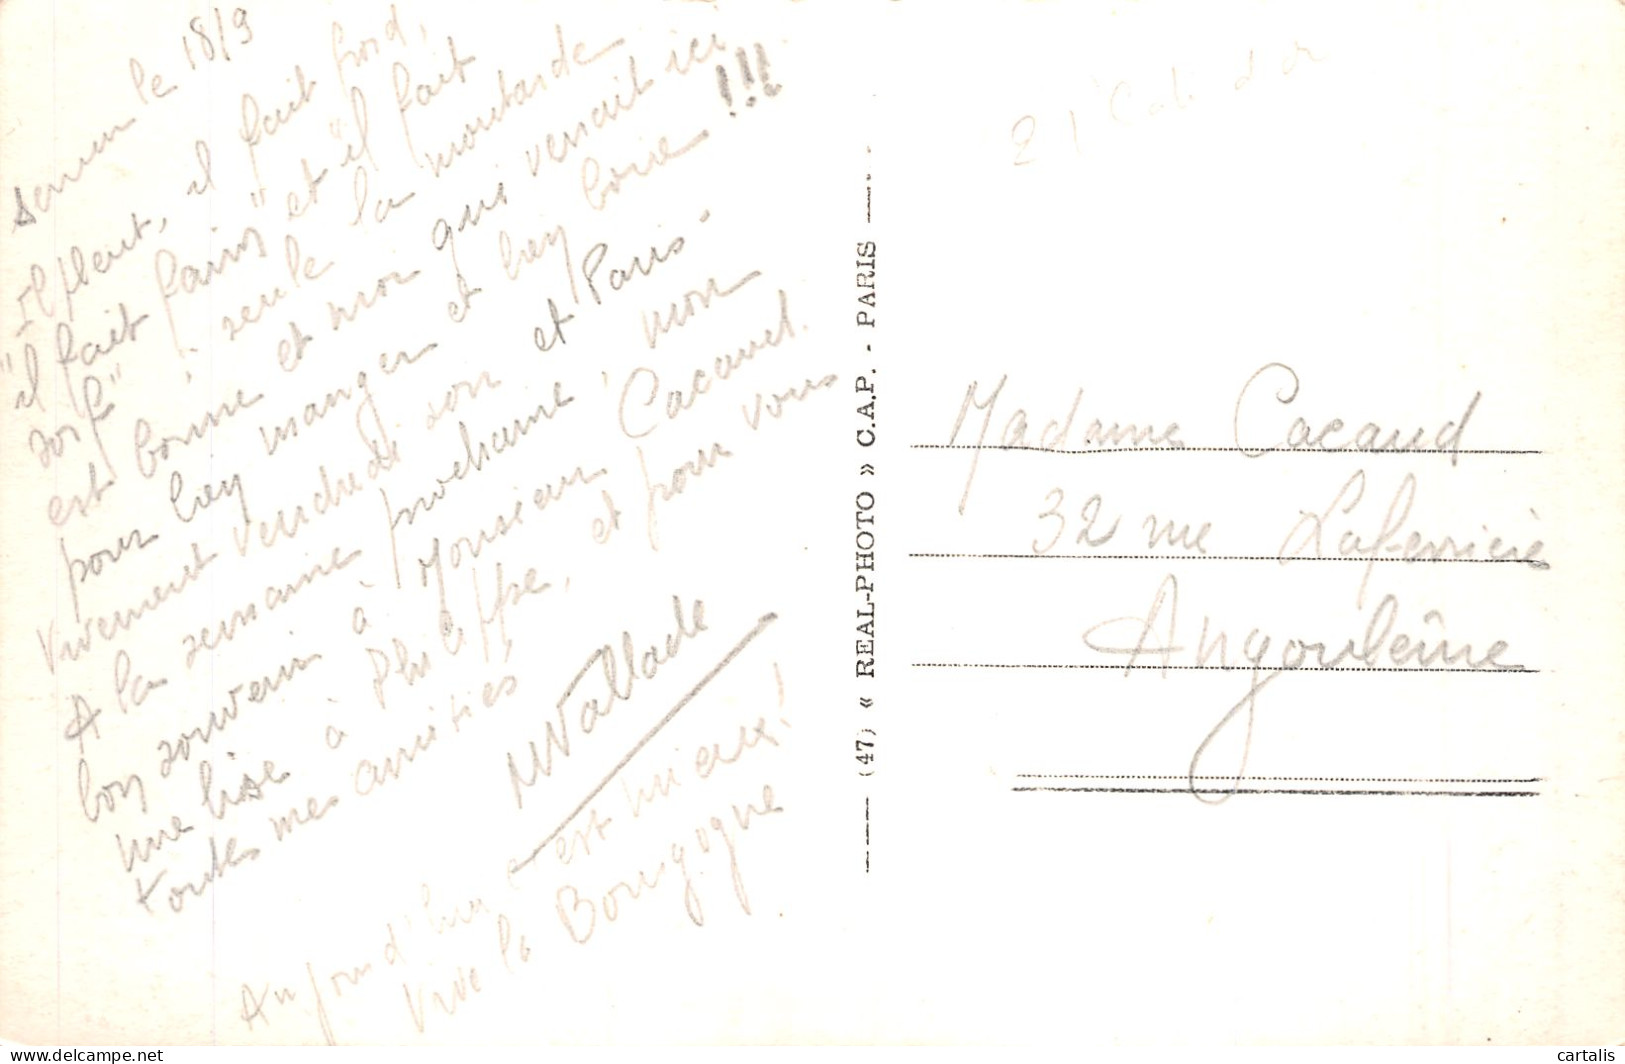 Semur le 18/9
Il pleut, il fait froid,
"il fait faim" et "il fait
soif" : seule la moutarde
est bonne et moi qui venait ici
pour bien manger et bien boire !!!
Vivement vendredi soir et Paris.
A la semaine prochaine, mon
bon souvenir à Monsieur Cacaud.
une bise à Philippe, et pour vous
toutes mes amitiés
MVallade
Aujourd'hui c'est mieux!
Vive la Bourgogne
(47) « REAL-PHOTO » C.A.P. - PARIS
21 Cote d'or
Madame Cacaud
32 rue Laferrière
Angoulême
cartalis